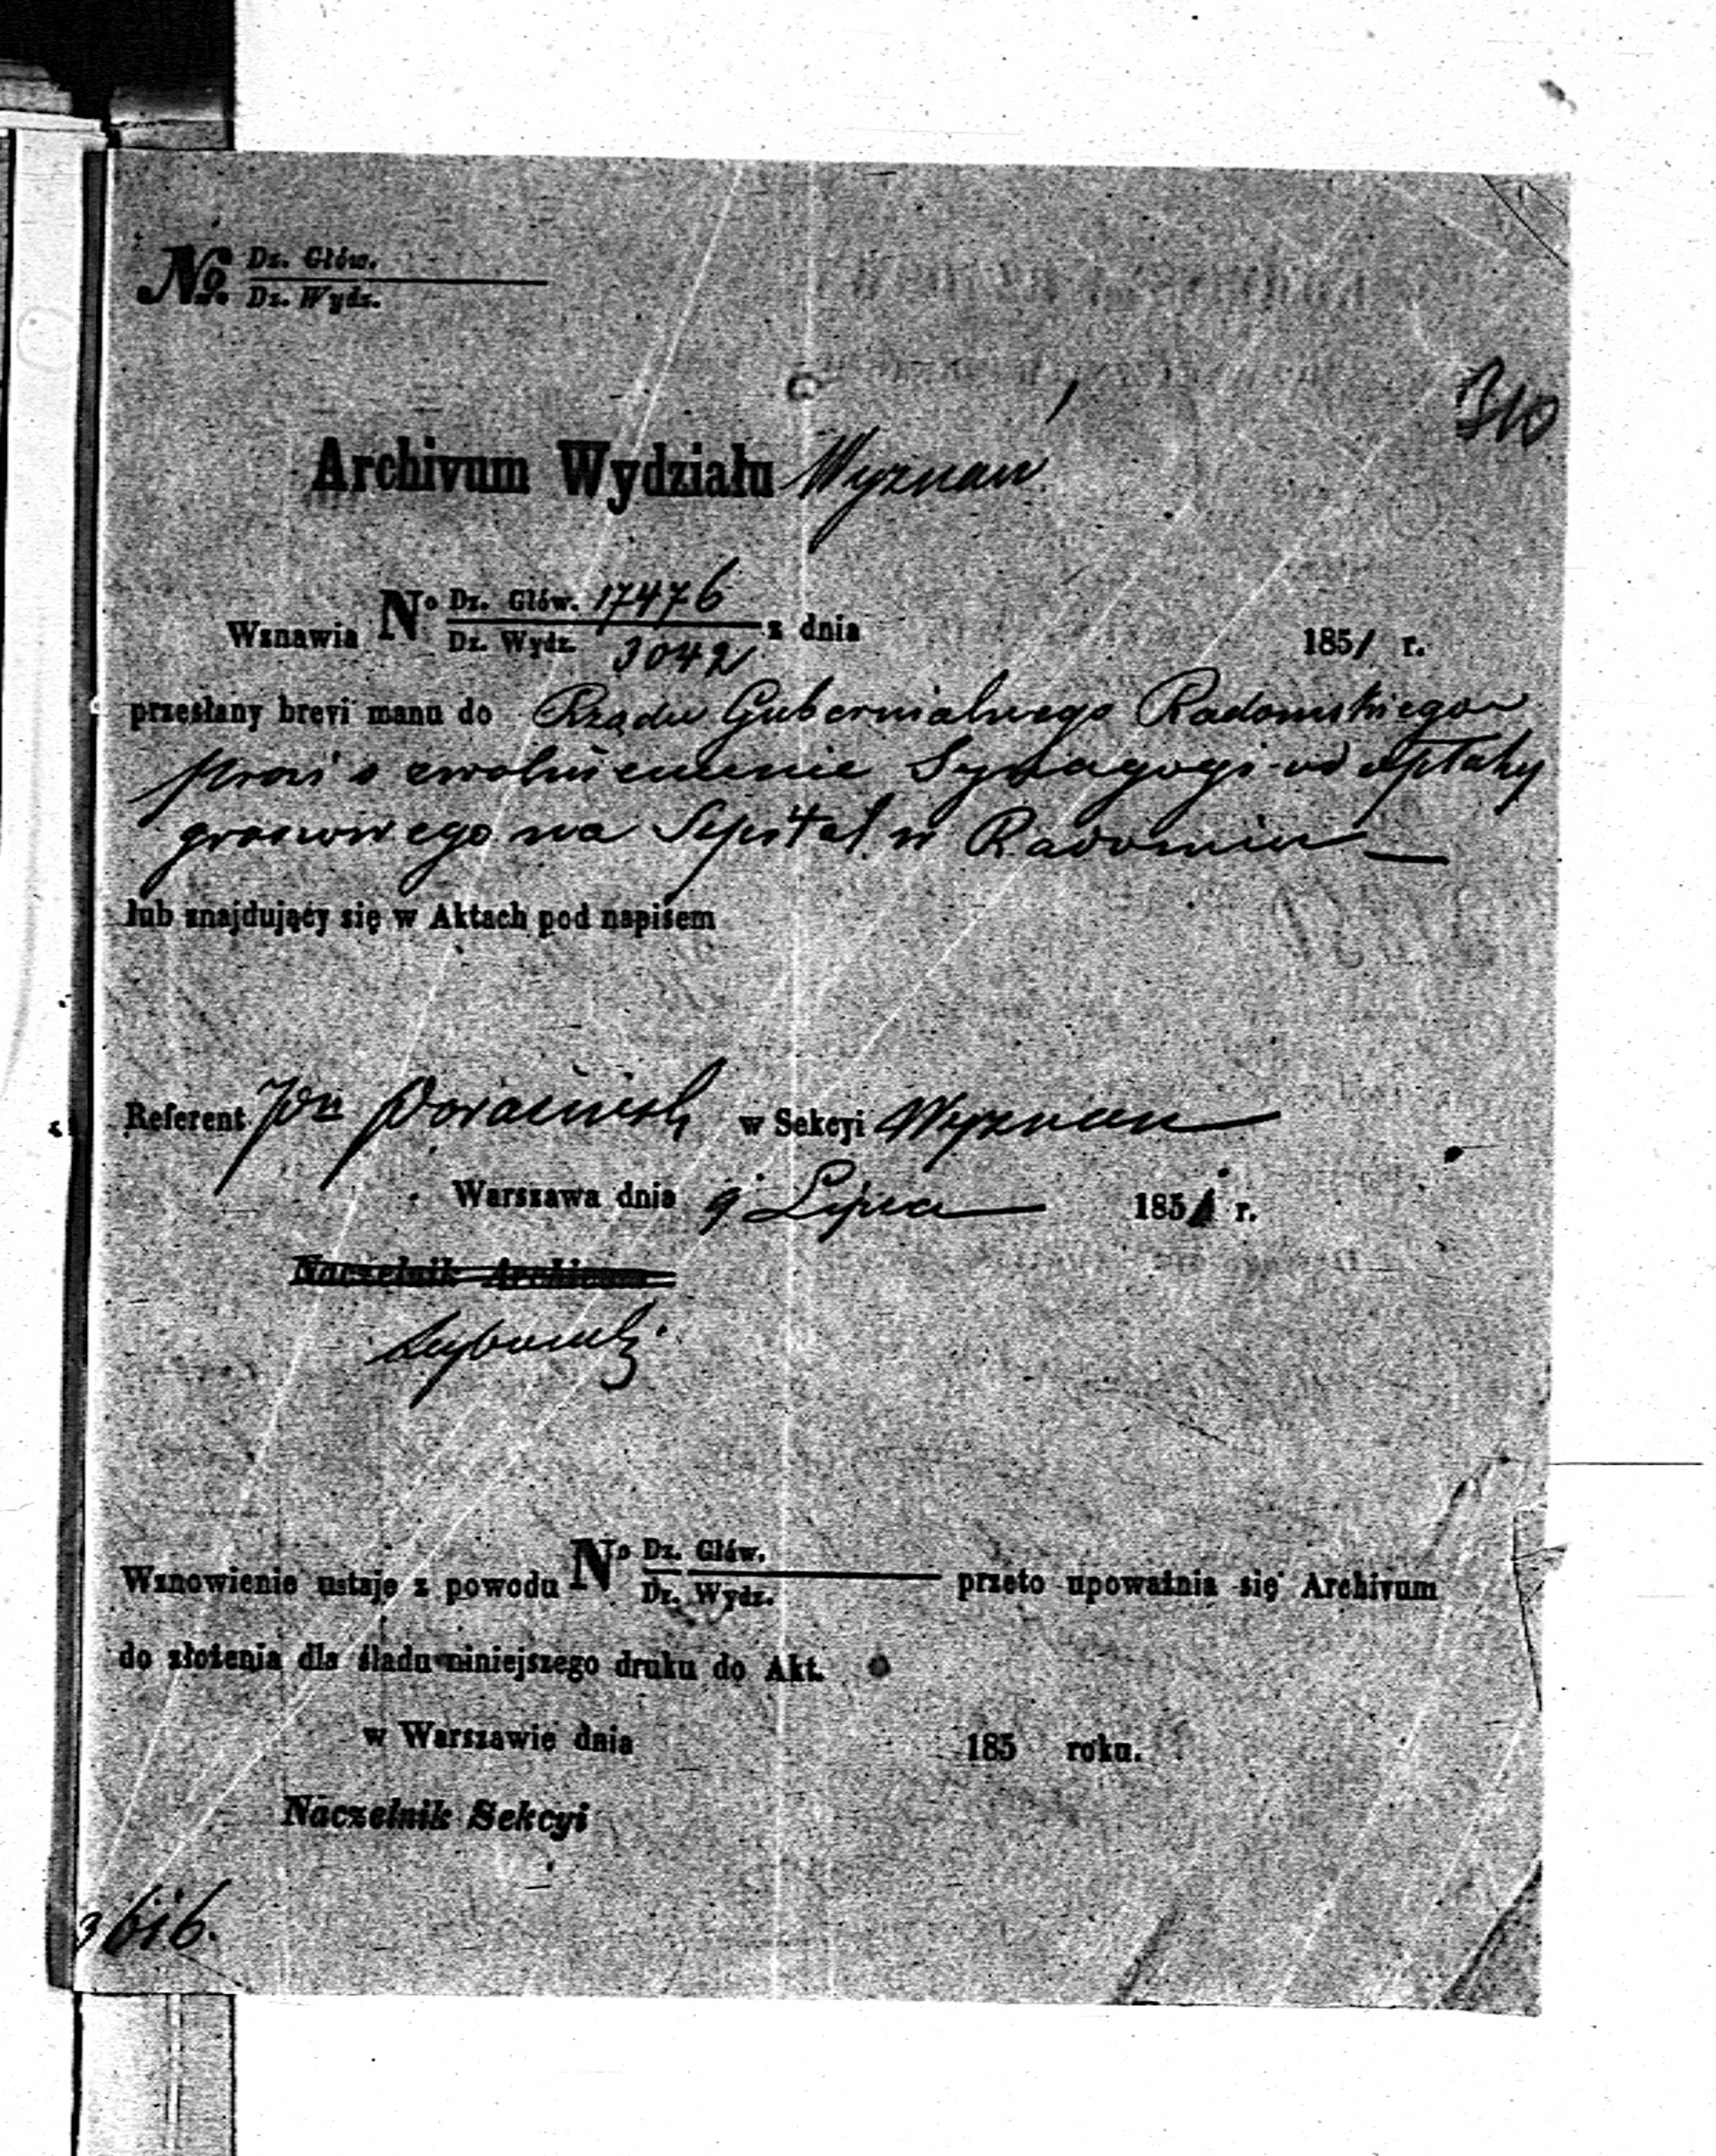 No. Dz. Głów.
Dz. Wydz.
310
Archivum Wydziału Wyznań
Wznawia No Dz. Głów. 17476 z dnia 1851 r.
Dz. Wydz. 3042
przesłany brevi manu do Rządu Gubernialnego Radomskiego
prosi o Synagogi od opłaty
groszowego na Szpital w Radomiu
lub znajdujący się w Aktach pod napisem
Referent w Sekcyi Wyznań
Warszawa dnia 9 Lipca 1851 r.
Naczelnik Archivum
Wznowienie ustaje z powodu No Dz. Głów. przeto upoważnia się Archivum
Dz. Wydz.
do złożenia dla śladu niniejszego druku do Akt.
w Warszawie dnia 185 roku.
Naczelnik Sekcyi
3616.